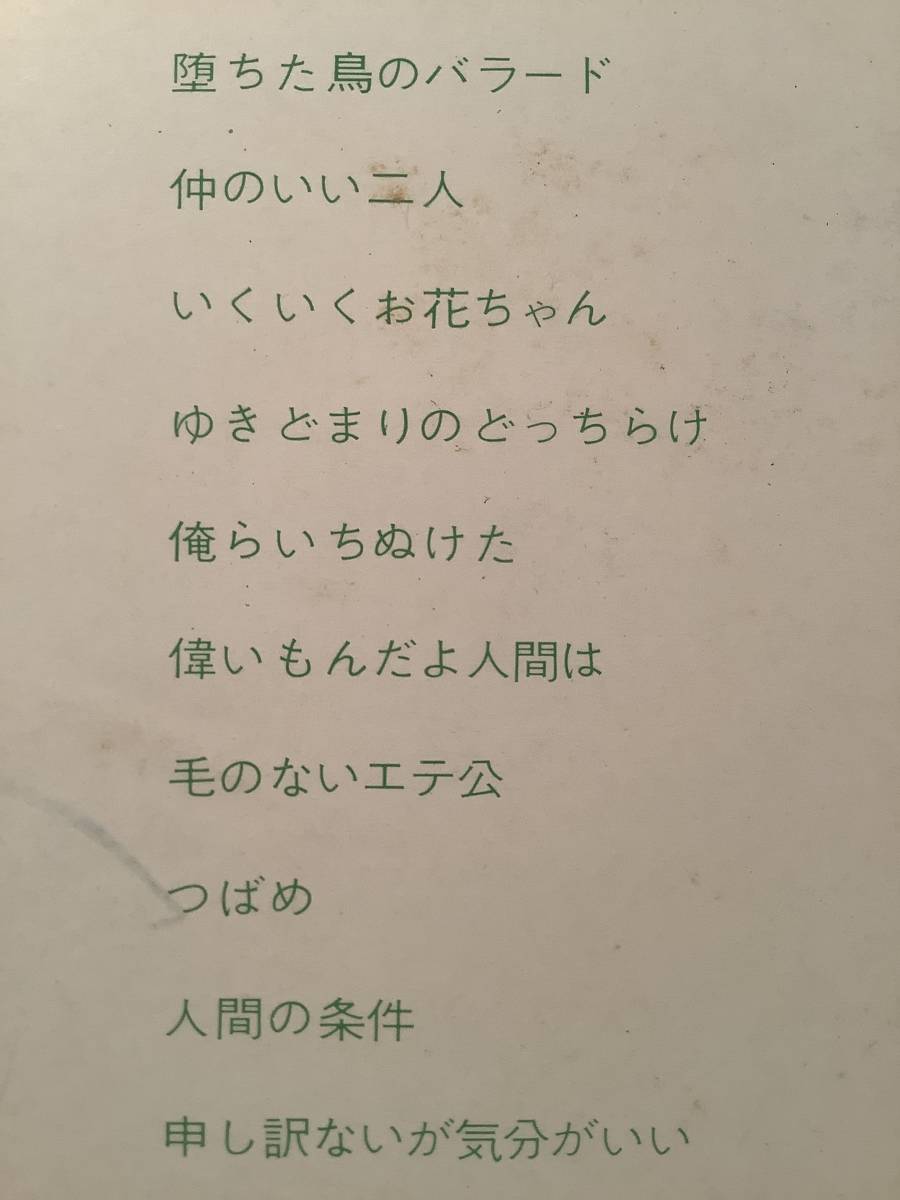 堕ちた鳥のバラード
仲のいい二人
いくいくお花ちゃん
ゆきどまりのどっちらけ
俺らいちぬけた
偉いもんだよ人間は
毛のないエテ公
つばめ
人間の条件
申し訳ないが気分がいい